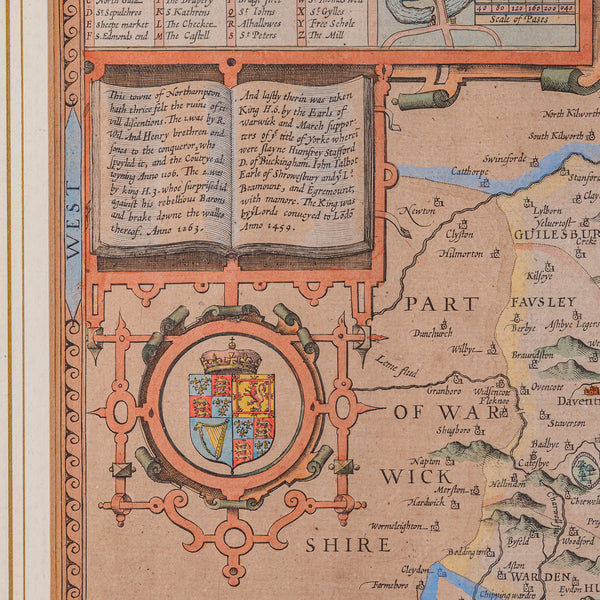 C North Gate I The Drapery Q Bridge street V St Thomas
D St Sepulchres K S Kathrens R St Iohns W St Gyles
E Sheepe market L The Checker R Alhallowes Y Free Schole
F St Edmonds end M The Castell S St Peters Z The Mill
Scale of Pases
40 80 120 160 200 240
This towne of Northampton
hath thrise felt the ruins of ci
vill discentions. The 1. was by R.
Wil. And Henry brethren and
sones to the conqueror, who
spoyled it, and the Coutrye ad
ioyning Anno 1106. The 2. was
by king H.3. whoe surprised it
against his rebellious Barons
and brake downe the walles
thereof. Anno 1263.
And lastly therin was taken
King H.6. by the Earls of
Warwick and March suppor-
ters of ye title of Yorke wherei
were slayne Humfrey Stafford
D. of Buckingham. Iohn Talbot
Earle of Shrowesbury and ye L:
Beamount, and Egremount,
with manore. The King was
by ye Lords conueyed to Lodo
Anno 1459.
WEST
North Kilworth
South Kilworth
Swineforde
Catthorpe
Stanford
Newton
Lylborn
Clay
Clyston
Yelvertoft
GUILESBUR
Creke
Hilmorton
Kilseye
PART
FAVSLEY
Dunchurch
Berbye
Ashbye Legers
Wilbye
Braundston
Leme flud
Granboro
Widsencote
Ovencote
Flekno
Davent
OF WAR
Staverton
Shugboro
Badbye
Napton
Catesbye
WICK
Merston
Hellindon
Hardwick
Charwelton
Wormeleighton
Byfeld
Woodford
SHIRE
Boddington
Aston
Cleydon
WARDEN
HU
Farneboro
Eydon
Chipping warden